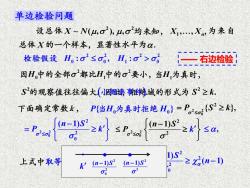 单边检验问题
设总体 X ~ N(μ,σ²), μ,σ²均未知, X₁,…,Xₙ为来自
总体 X 的一个样本,显著性水平为α.
检验假设 H₀:σ²≤σ₀², H₁:σ²>σ₀²
—— 右边检验
因H₀中的全部σ²都比H₁中的σ²要小,当H₁为真时,
S²的观察值往往偏大,
的形式为 S² ≥ k.
下面确定常数k, P{当H₀为真时拒绝 H₀} = P_{σ²≤σ₀²}{S² ≥ k},
= P_{σ²≤σ₀²}{(n−1)S²/σ₀² ≥ k′} ≤ P_{σ²≤σ₀²}{(n−1)S²/σ² ≥ k′} ≤ α,
上式中取等
k′ (n−1)S²/σ₀² (n−1)S²/σ²